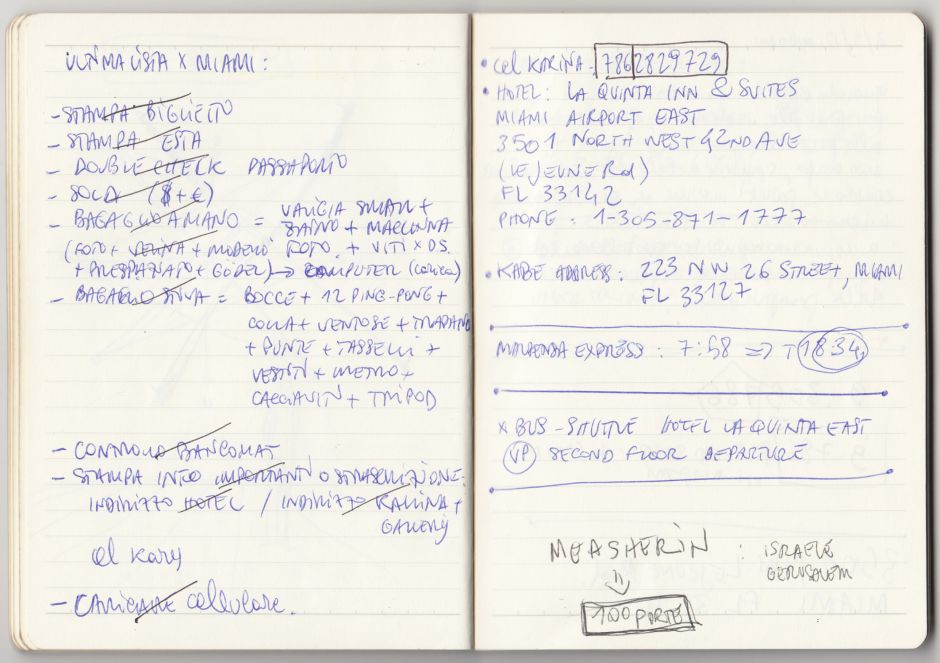 ULTIMA LISTA X MIAMI:
- STAMPA BIGLIETTO
- STAMPA ESTA
- DOUBLE CHECK PASSAPORTO
- SOLDI ($ + €)
- BAGAGLIO A MANO = VALIGIA SMALL +
ZAINO + MACCHINA
(FOTO + VELINA + MODEM) FOTO. + VITI X DS.
+ PRESPAZIATO + → COMPUTER (CARICA)
- BAGAGLIO STIVA = BOCCE + 12 PING-PONG +
COLLA + VENTOSE + TRAPANO
+ PUNTE + TASSELLI +
VESTITI + METRO +
CACCIAVITI + TRIPOD
- CONTROLLO BANCOMAT
- STAMPA INFO IMPORTANTI O TRASCRIZIONE:
INDIRIZZO HOTEL / INDIRIZZO KARINA +
GALLERY
cel KARY
- CARICARE cellulare.
• cel KARINA: 7862829729
• HOTEL: LA QUINTA INN & SUITES
MIAMI AIRPORT EAST
3501 NORTH WEST 42ND AVE
(LE JEUNE Rd)
FL 33142
PHONE: 1-305-871-1777
• KABE ADDRESS: 223 NW 26 STREET, MIAMI
FL 33127
MALPENSA EXPRESS: 7:58 => T 1834
X BUS-SHUTTLE HOTEL LA QUINTA EAST
UP SECOND FLOOR DEPARTURE
MEASHERIN : ISRAELE
GERUSALEM
100 PORTE